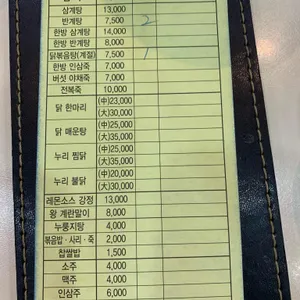 삼계탕 13,000
반계탕 7,500 2
한방 삼계탕 14,000
한방 반계탕 8,000
닭볶음탕(계절) 7,500 1
한방 인삼죽 7,000
버섯 야채죽 7,000
전복죽 10,000
닭 한마리 (中)23,000
(大)30,000
닭 매운탕 (中)25,000
(大)35,000
누리 찜닭 (中)25,000
(大)35,000
누리 불닭 (中)20,000
(大)30,000
레몬소스 강정 13,000
왕 계란말이 8,000
누룽지탕 4,000
볶음밥·사리·죽 2,000
찹쌀밥 1,500
소주 4,000
맥주 4,000
인삼주 6,000